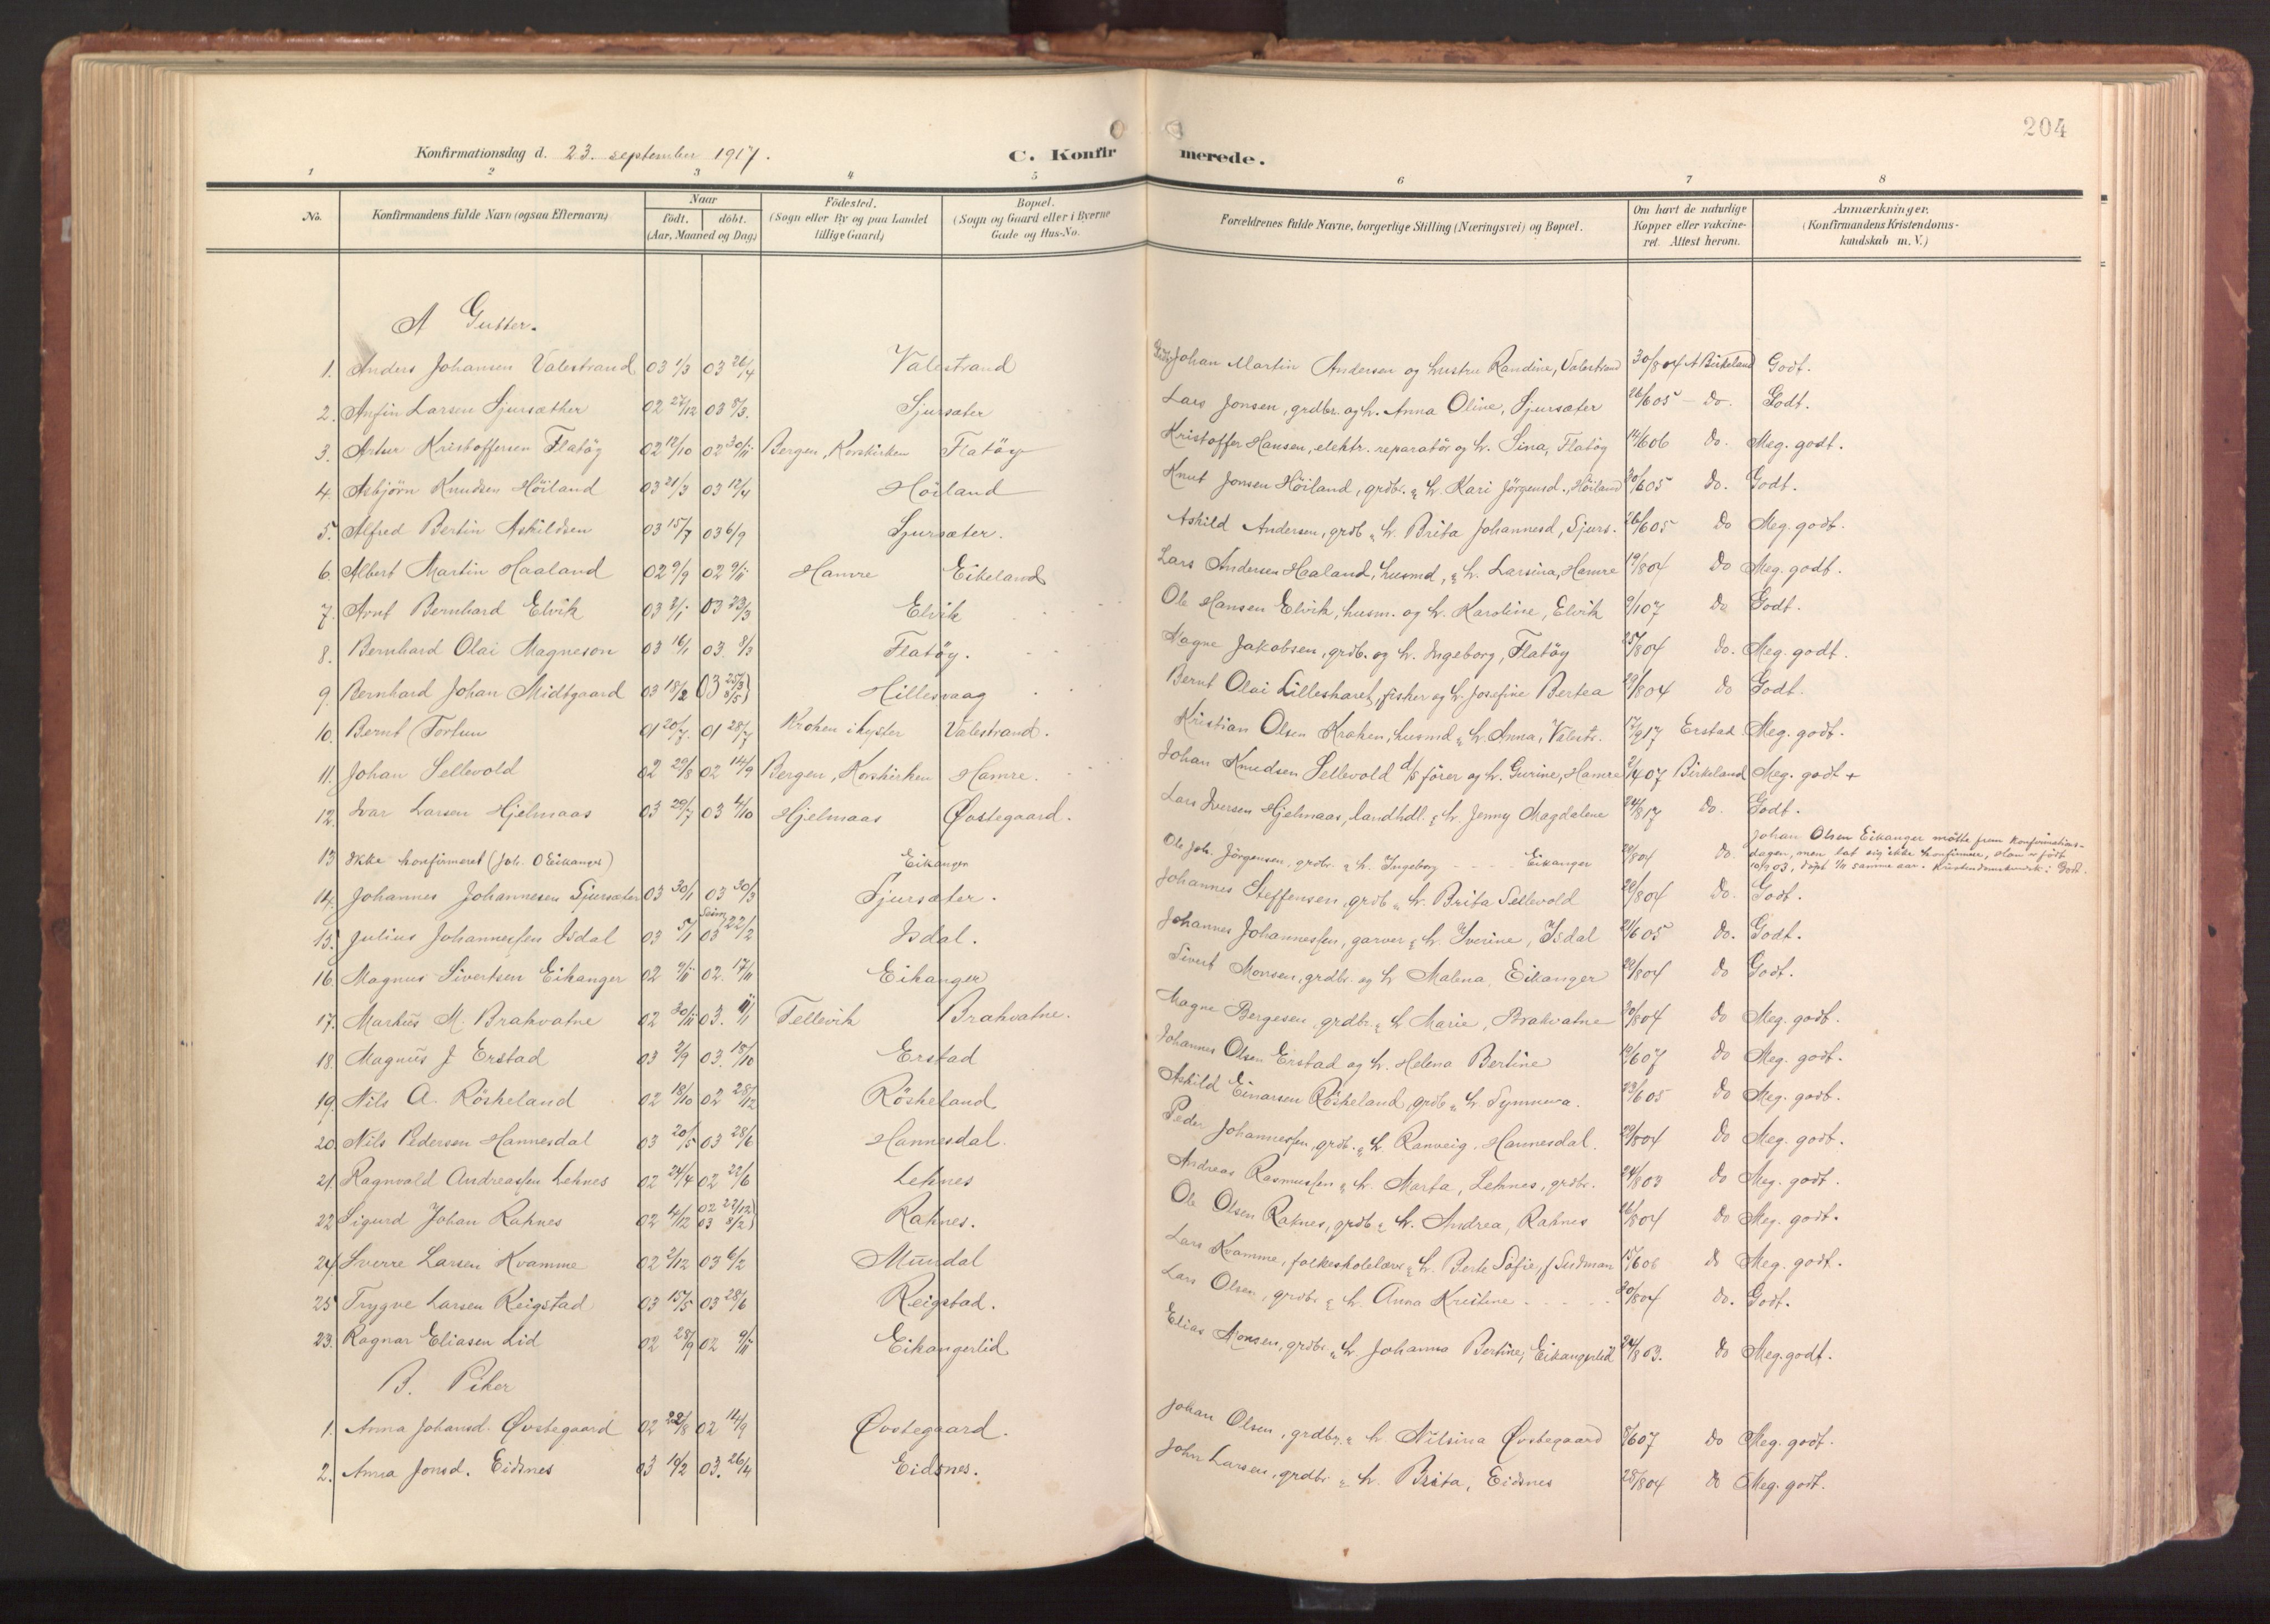 204
Konfirmationsdag d. 23. september 1917.
C. Konfirmerede.
1 2 3 4 5 6 7 8
No.
Konfirmandens fulde Navn (ogsaa Efternavn)
Naar
födt. döbt.
(Aar, Maaned og Dag)
Födested.
(Sogn eller By og paa Landet
tillige Gaard)
Bopæl.
(Sogn og Gaard eller i Byerne
Gade og Hus-No.
Forældrenes fulde Navne, borgerlige Stilling (Næringsvei) og Bopæl.
Om havt de naturlige
Kopper eller vakcine-
ret. Attest herom.
Anmærkninger.
(Konfirmandens Kristendoms-
kundskab m. V.)
A Gutter.
1. Anders Johansen Valestrand 03 1/3 03 26/4 Valestrand Johan Martin Andersen og hustru Randine, Valestrand 30/8 04 A Birkeland Godt.
2. Anfin Larsen Sjursæther 02 27/12 03 8/3. Sjursæter Lars Jonsen, grdbr. og h. Anna Oline, Sjursæter 26/6 05 - do. Godt.
3. Artur Kristoffersen Flatöy 02 12/10 02 30/11 Bergen, Korskirken Flatöy Kristoffer Hansen, elektr. reparatör og h. Sina, Flatöy 14/6 06 do. Meg. godt.
4. Asbjörn Knudsen Höiland 03 21/3 03 12/4 Höiland Knut Jonsen Höiland, grdbr. " h. Kari Jörgensd., Höiland 30/6 05 do. Godt.
5. Alfred Bertin Askildsen 03 15/7 03 6/9 Sjursæter. Askild Andersen, grdb " h. Brita Johannesd, Sjurs. 26/6 05 do Meg. godt.
6. Albert Martin Haaland 02 9/9 02 9/11 Hamre Eikeland Lars Andersen Haaland, husmd, " h. Larsina, Hamre 19/8 04 do Meg. godt.
7. Arnt Bernhard Elvik 03 2/1 03 23/3 Elvik Ole Hansen Elvik, husm. og h. Karoline, Elvik 9/10 7 do Godt.
8. Bernhard Olai Magneson 03 16/1 03. 8/3 Flatöy. Magne Jakobsen, grdb. og h. Ingeborg, Flatöy 25/8 04 do. Meg. godt.
9. Bernhard Johan Midtgaard 03 18/2 (03 25/3 8/5) Hillesvaag Bernt Olai Lilleskaret, fisker og h. Josefine Bertea 29/8 04 do Godt.
10. Bernt Fortun 01 20/7. 01 28/7 Kroken i hyster Valestrand. Kristian Olsen Kroken, husmd " h Anna, Valestr. 17/9 17 Erstad Meg. godt.
11. Johan Sellevold 02 29/8 02 14/9 Bergen, Korskirken Hamre. Johan Knudsen Sellevold d/s förer og h. Gurine, Hamre 2/4 07 Birkeland Meg. godt +
12. Ivar Larsen Hjelmaas 03 29/7 03 4/10 Hjelmaas Øvstegaard. Lars Iversen Hjelmaas, landhdl. " h. Jenny Magdalene 24/8 17 do. Godt.
13 Ikke konfirmeret (Joh. O Eikanger) Eikanger Ole Joh. Jörgensen, grdbr. " h. Ingeborg - - - Eikanger 29/8 04 do. Johan Olsen Eikanger mötte frem Konfirmations-
dagen, men lot sig ikke konfirmere, Han er födt
10/9 03, döpt 1/11 samme aar. Kristendomskundsk: Godt.
14. Johannes Johannesen Sjursæter 03 30/1 03 30/3 Sjursæter. Johannes Steffensen, grdb " h. Brita Sellevold 29/8 04 do. Godt.
15. Julius Johannessen Isdal 03 5/1 Seim, 03 22/2 Isdal. Johannes Johannessen, garver " h. Iverine, Isdal 21/6 05 do. Godt.
16. Magnus Sivertsen Eikanger 02 9/11 02. 17/11 Eikanger Sivert Monsen, grdbr. og h Malena, Eikanger 29/8 04 do Godt.
17. Markus M. Brakvatne 02 30/11 03. 11/1 Tellevik Brakvatne. Magne Bergesen, grdbr. " h Marie, Brakvatne 30/8 04 do Meg. godt.
18. Magnus J Erstad 03 2/9 03. 18/10 Erstad Johannes Olsen Erstad og h. Helena Bertine 10/6 07 do Meg. godt.
19. Nils A. Rösheland 02 18/10 02 28/12 Rösheland Askild Einarsen Rösheland, grdb " h. Synneva. 23/6 05 do Meg. godt.
20 Nils Pedersen Hannesdal 03 20/5 03 28/6 Hannesdal. Peder Johannessen, grdb. " h. Ranveig, Hannesdal. 29/8 04 do Meg. godt.
21. Ragnvald Andreassen Lehnes 02 24/4 02 22/6 Lehnes Andreas Rasmussen " h. Marta, Lehnes, grdbr. 24/8 03 do Meg. godt.
22 Sigurd Johan Raknes 02 4/12 02 27/12) 03 8/2) Raknes. Ole Olsen Raknes, grdb. " h. Andrea, Raknes 26/8 04 do Meg. godt.
24. Sverre Larsen Kvamme 02 2/12 03 6/2 Mundal Lars Kvamme, folkeskolelærer " h. Berte Sofie, f Sudman 15/6 06 do Meg. godt.
25 Trygve Larsen Reigstad 03 15/5 03 28/6 Reigstad. Lars Olsen, grdbr " h. Anna Kristine - - - 30/8 04 do. Godt.
23. Ragnar Eliasen Lid 02 28/9 02 9/11 Eikangerlid Elias Monsen, grdbr. " h. Johanna Bertine, Eikangerlid 24/8 03. do Meg. godt.
B. Piker
1. Anna Johansd. Øvstegaard 02 22/8 02 14/9 Øvstegaard. Johan Olsen, grdbr. " h. Nilsina Øvstegaard 8/6 07 do Meg. godt.
2. Anna Jonsd. Eidsnes 03 14/2 03. 26/4 Eidsnes. John Larsen, grdbr " h. Brita, Eidsnes 25/8 04 do Meg. godt.